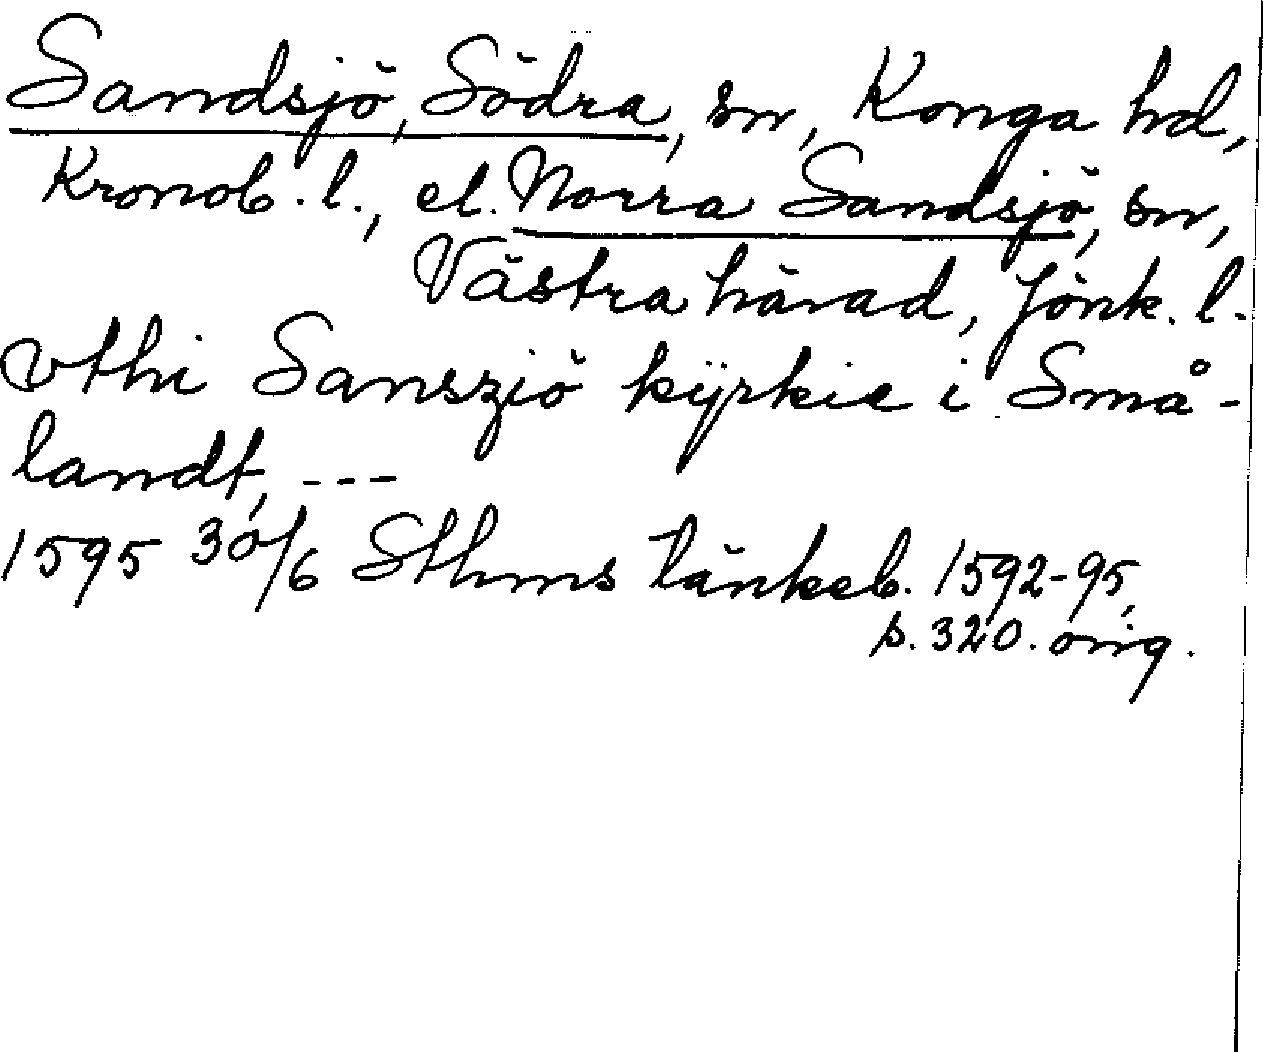 Sandsjö, Södra, sn, Konga hd,
Kronob. l., el. Norra Sandsjö, sn,
Västra härad, Jönk. l.
vthi Sanszjö kÿrkie i Små-
landt, ---
1595 30/6 Sthms tänkeb. 1592-95,
s. 320. orig.